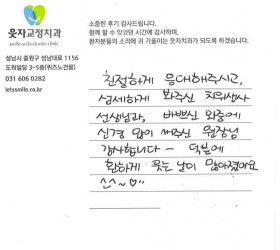 웃자교정치과
smile orthodontic clinic
성남시 중원구 성남대로 1156
도림빌딩 3-5층(퀴즈노건물)
031 606 0282
letssmile.co.kr
소중한 후기 감사드립니다.
함께 할 수 있었던 시간에 감사하며,
환자분들의 소리에 귀 기울이는 웃자치과가 되도록 하겠습니다.
친절하게 응대해주시고,
섬세하게 봐주신 치위생사
선생님과, 바쁘신 와중에
신경 많이 써주신 원장님
감사합니다 - 덕분에
환하게 웃는 날이 많아졌어요
^^~♡